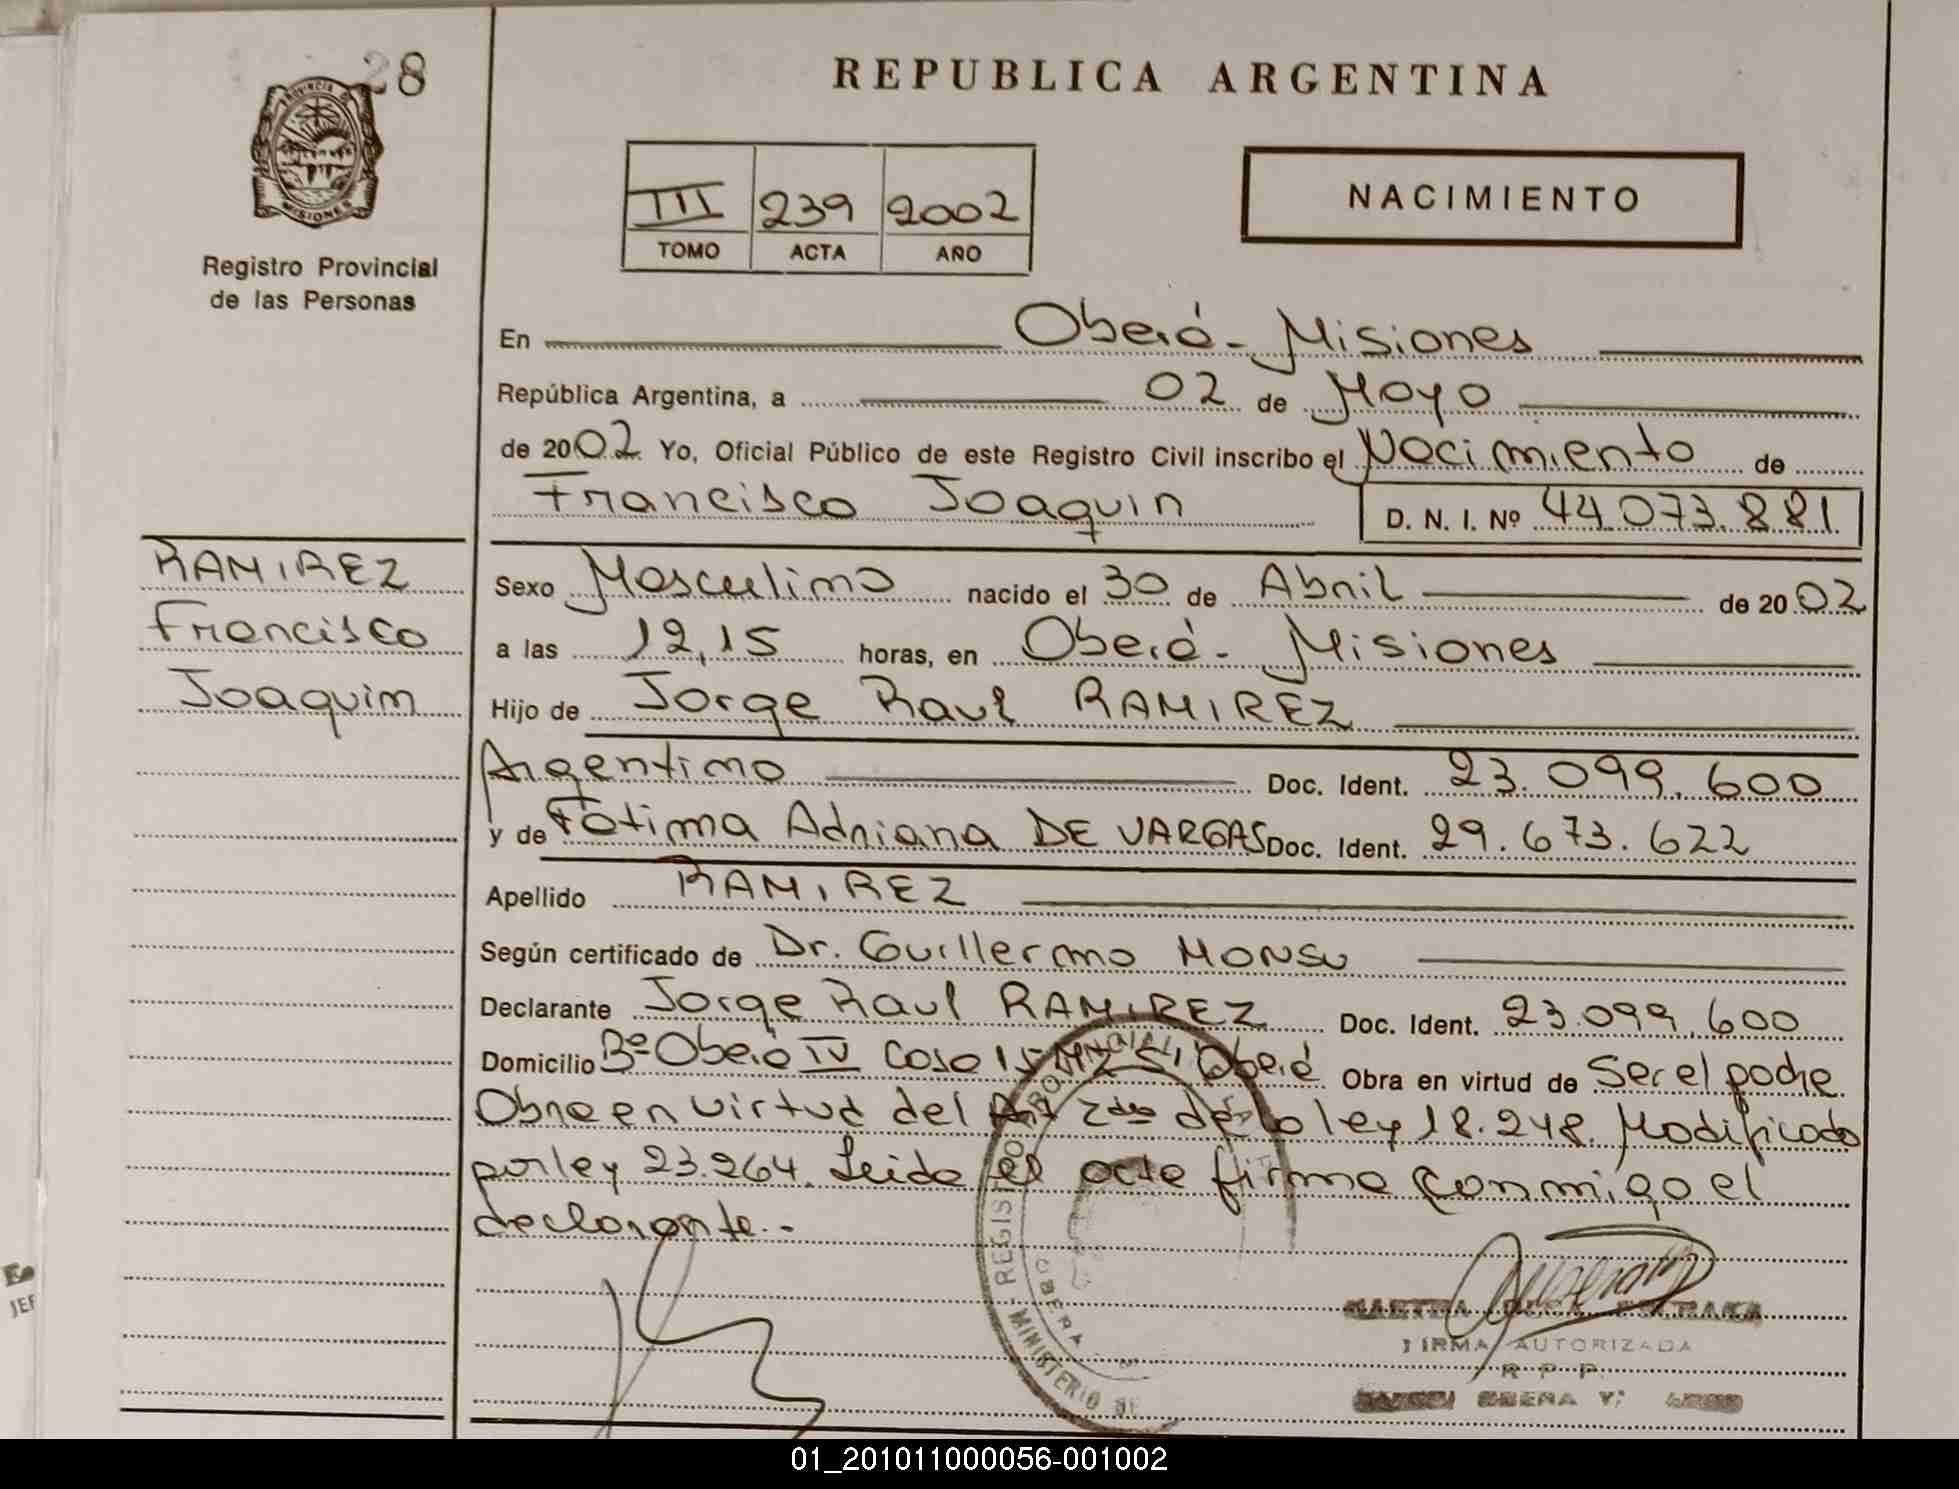 28
REPUBLICA ARGENTINA
PROVINCIA DE
MISIONES
Registro Provincial
de las Personas
III 239 2002
TOMO ACTA AÑO
NACIMIENTO
En Oberá - Misiones
República Argentina, a 02 de Mayo
de 2002 Yo, Oficial Público de este Registro Civil inscribo el Nacimiento de
Francisco Joaquin D. N. I. Nº 44.073.881
RAMIREZ
Francisco
Joaquin
Sexo Masculino nacido el 30 de Abril de 2002
a las 12,15 horas, en Oberá - Misiones
Hijo de Jorge Raul RAMIREZ
Argentino Doc. Ident. 23.099.600
y de Fátima Adriana DE VARGAS Doc. Ident. 29.673.622
Apellido RAMIREZ
Según certificado de Dr. Guillermo MONSU
Declarante Jorge Raul RAMIREZ Doc. Ident. 23.099.600
Domicilio Bº Oberá IV Casa 15 Oberá Obra en virtud de Ser el padre
Obra en virtud del Art 2do de la ley 18.248. Modificado
por ley 23.264. Leida el acta firma conmigo el
declarante.-
REGISTRO PROVINCIAL
MINISTERIO DE
OBERA
FIRMA AUTORIZADA
R. P. P.
OBERA
JEF
01_201011000056-001002